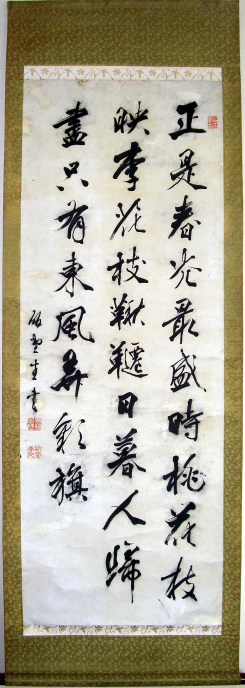 正是春光最盛時桃花枝
映李花枝鞦韆日暮人歸
盡只有東風弄彩旗